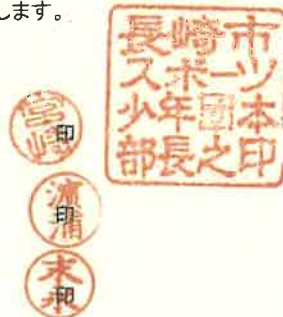 します。
長崎市
スポーツ
少年団本
部長之印
印
印
末永
印